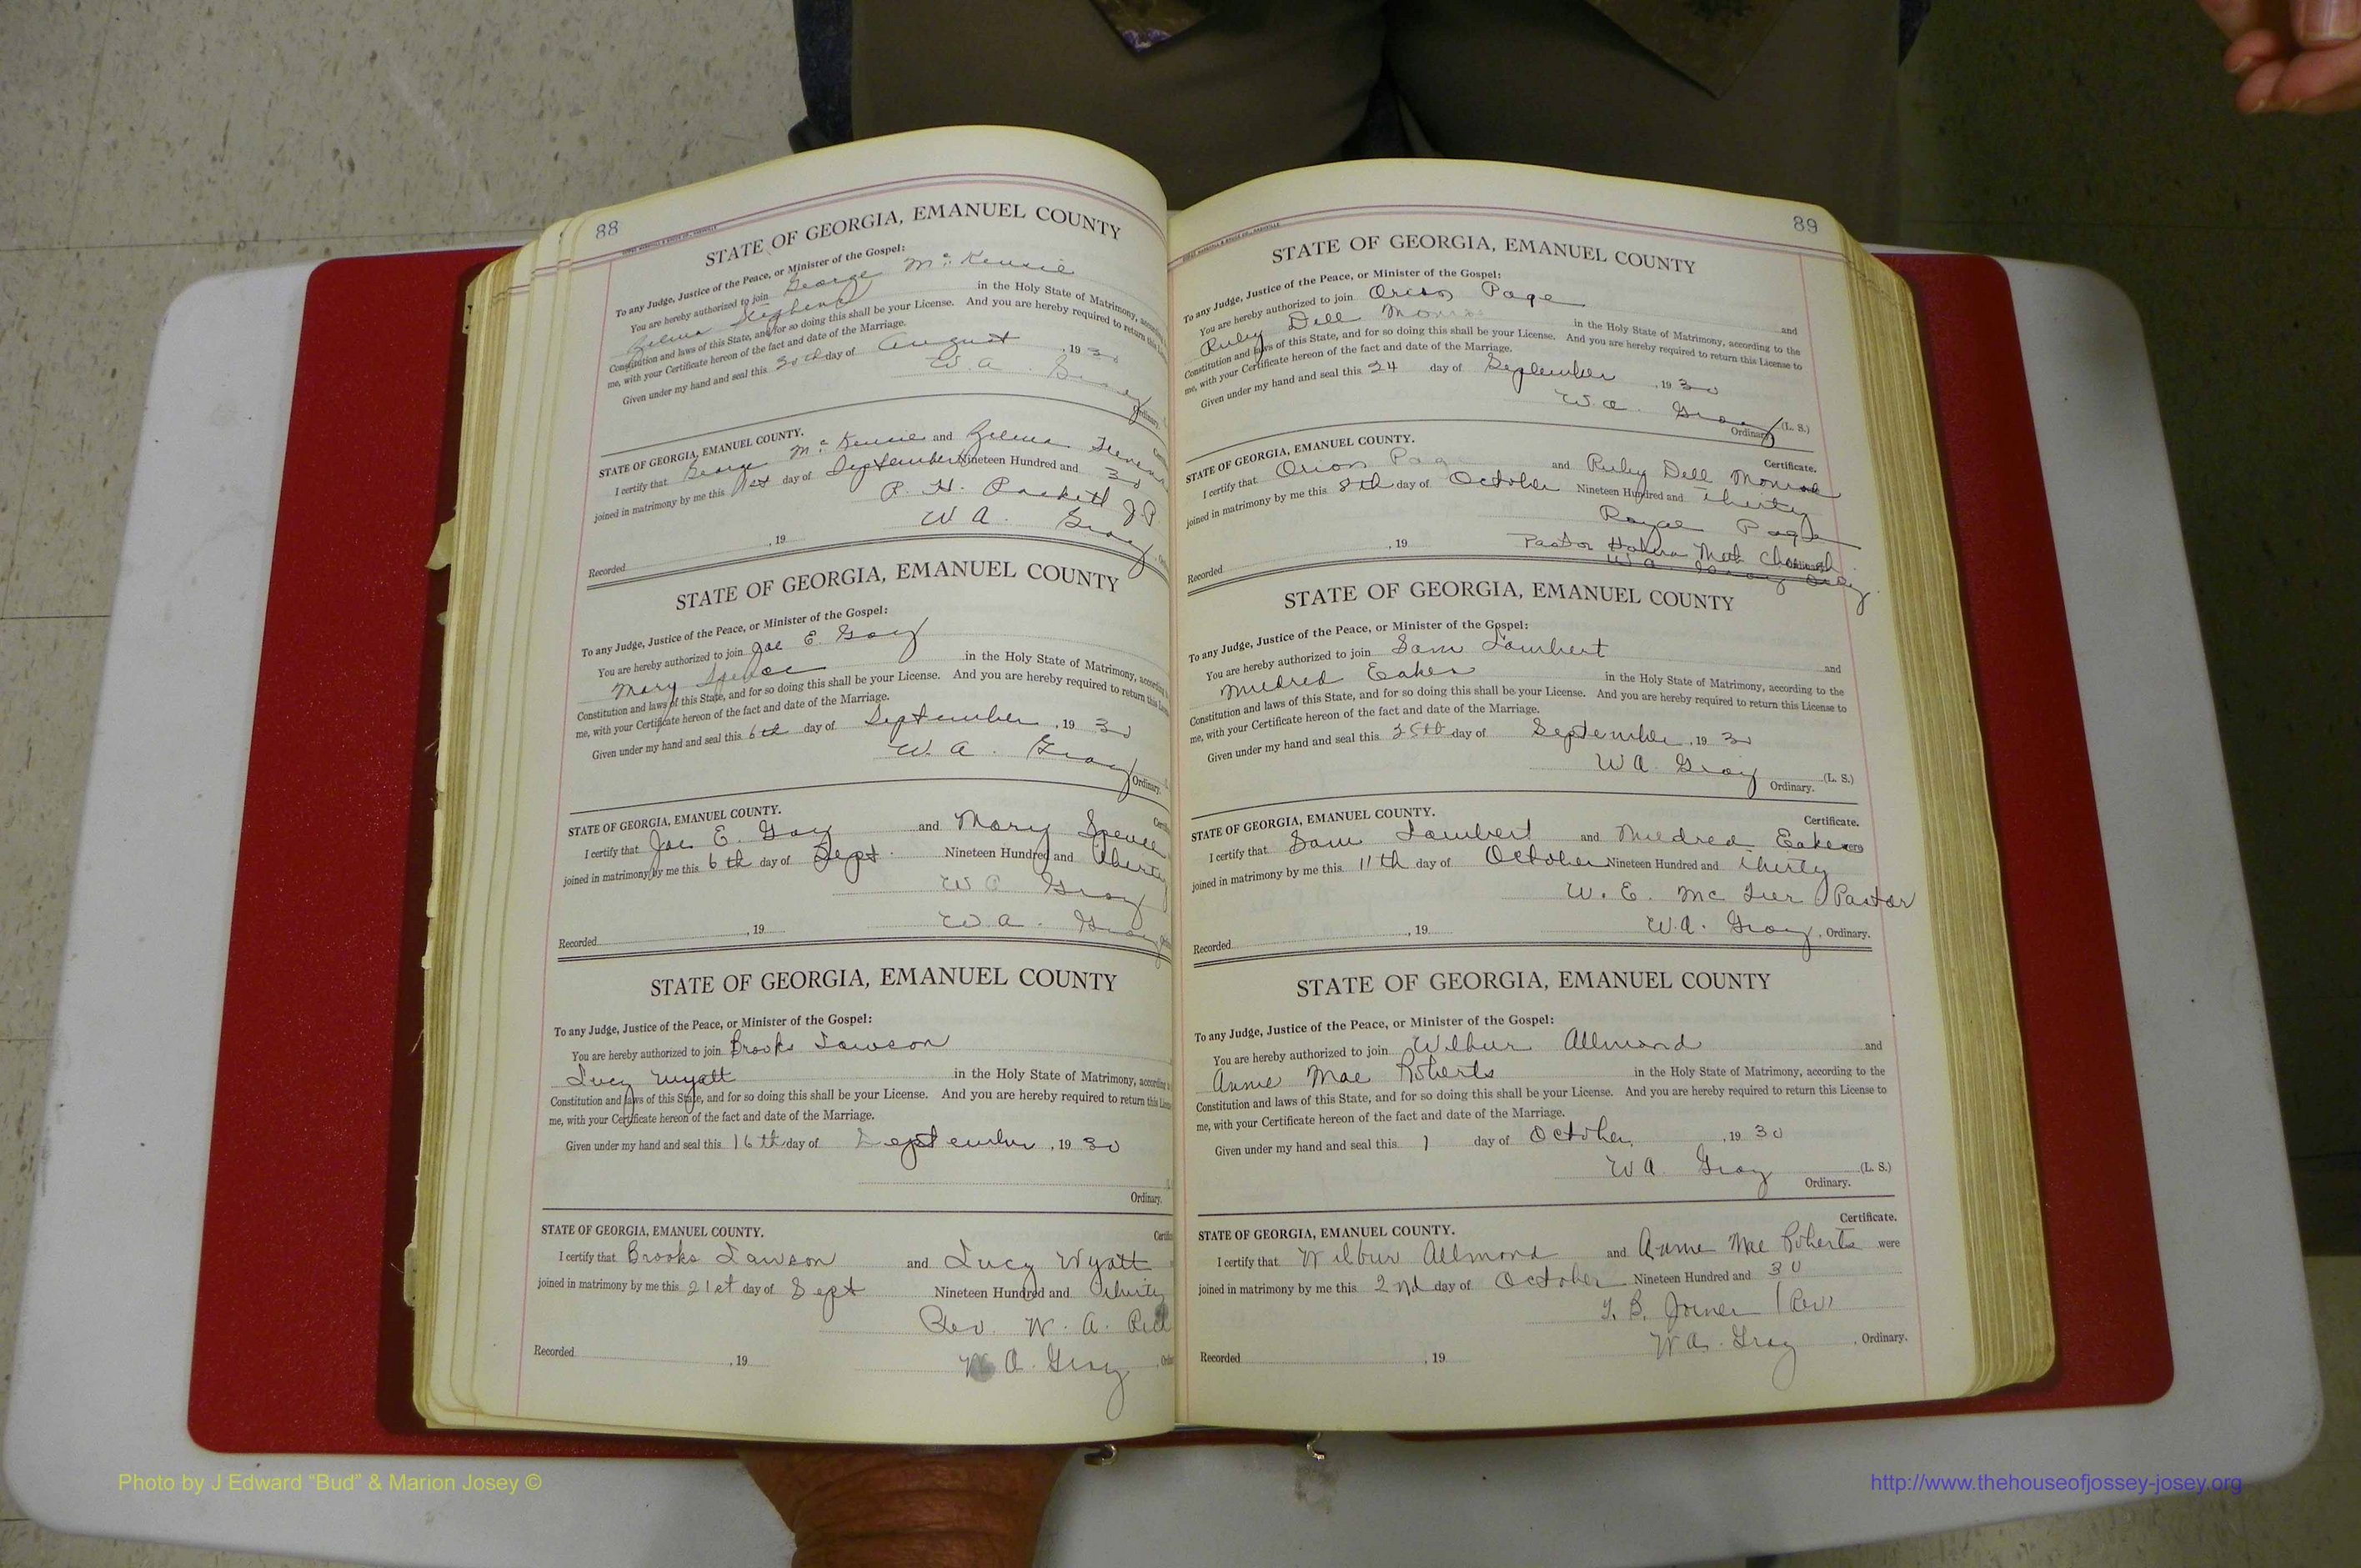 88
STATE OF GEORGIA, EMANUEL COUNTY
To any Judge, Justice of the Peace, or Minister of the Gospel:
You are hereby authorized to join George McKennie
Zelma in the Holy State of Matrimony,
Constitution and laws of this State, and for so doing this shall be your License. And you are hereby required to return this
me, with your Certificate hereon of the fact and date of the Marriage.
Given under my hand and seal this 30th day of August, 1930
W. A. Gray
Ordinary.
STATE OF GEORGIA, EMANUEL COUNTY.
I certify that George McKennie and Zelma
joined in matrimony by me this 1st day of September Nineteen Hundred and 30
P. H. J.P.
W A. Gray
Recorded , 19
STATE OF GEORGIA, EMANUEL COUNTY
To any Judge, Justice of the Peace, or Minister of the Gospel:
You are hereby authorized to join Joe E. Gay
Mary Spence in the Holy State of Matrimony, according
Constitution and laws of this State, and for so doing this shall be your License. And you are hereby required to return this
me, with your Certificate hereon of the fact and date of the Marriage.
Given under my hand and seal this 6th day of September, 1930
W. A. Gray
Ordinary.
STATE OF GEORGIA, EMANUEL COUNTY.
I certify that Joe E. Gay and Mary Spence
joined in matrimony by me this 6th day of Sept. Nineteen Hundred and thirty
W A Gray
Recorded , 19 W. A. Gray
STATE OF GEORGIA, EMANUEL COUNTY
To any Judge, Justice of the Peace, or Minister of the Gospel:
You are hereby authorized to join Brooks Lawson
Lucy Wyatt in the Holy State of Matrimony, according
Constitution and laws of this State, and for so doing this shall be your License. And you are hereby required to return this
me, with your Certificate hereon of the fact and date of the Marriage.
Given under my hand and seal this 16th day of September, 1930
Ordinary.
STATE OF GEORGIA, EMANUEL COUNTY.
I certify that Brooks Lawson and Lucy Wyatt
joined in matrimony by me this 21st day of Sept Nineteen Hundred and thirty
Rev. W. A.
Recorded , 19 W A. Gray
89
STATE OF GEORGIA, EMANUEL COUNTY
To any Judge, Justice of the Peace, or Minister of the Gospel:
You are hereby authorized to join Orion Page and
Ruby Dell Monroe in the Holy State of Matrimony, according to the
Constitution and laws of this State, and for so doing this shall be your License. And you are hereby required to return this License to
me, with your Certificate hereon of the fact and date of the Marriage.
Given under my hand and seal this 24 day of September, 1930
W. A. Gray (L. S.)
Ordinary.
STATE OF GEORGIA, EMANUEL COUNTY. Certificate.
I certify that Orion Page and Ruby Dell Monroe
joined in matrimony by me this 8th day of October Nineteen Hundred and thirty
Page
Pastor Meth Church
Recorded , 19 W A Gray Ordy
STATE OF GEORGIA, EMANUEL COUNTY
To any Judge, Justice of the Peace, or Minister of the Gospel:
You are hereby authorized to join Sam Lambert and
Mildred Eaker in the Holy State of Matrimony, according to the
Constitution and laws of this State, and for so doing this shall be your License. And you are hereby required to return this License to
me, with your Certificate hereon of the fact and date of the Marriage.
Given under my hand and seal this 25th day of September, 1930
W A. Gray (L. S.)
Ordinary.
STATE OF GEORGIA, EMANUEL COUNTY. Certificate.
I certify that Sam Lambert and Mildred Eaker were
joined in matrimony by me this 11th day of October Nineteen Hundred and thirty
W. E. McTier Pastor
Recorded , 19 W. A. Gray, Ordinary.
STATE OF GEORGIA, EMANUEL COUNTY
To any Judge, Justice of the Peace, or Minister of the Gospel:
You are hereby authorized to join Wilbur Allmond and
Annie Mae Roberts in the Holy State of Matrimony, according to the
Constitution and laws of this State, and for so doing this shall be your License. And you are hereby required to return this License to
me, with your Certificate hereon of the fact and date of the Marriage.
Given under my hand and seal this 1 day of October, 1930
W A Gray (L. S.)
Ordinary.
STATE OF GEORGIA, EMANUEL COUNTY. Certificate.
I certify that Wilbur Allmond and Annie Mae Roberts were
joined in matrimony by me this 2nd day of October Nineteen Hundred and 30
B. Joiner (Rev)
Recorded , 19 W A. Gray, Ordinary.
Photo by J Edward “Bud” & Marion Josey ©
http://www.thehouseofjossey-josey.org